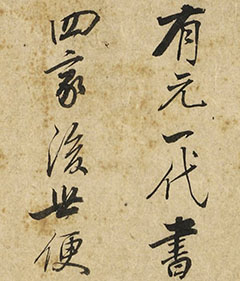 有元一代書
四家後世便